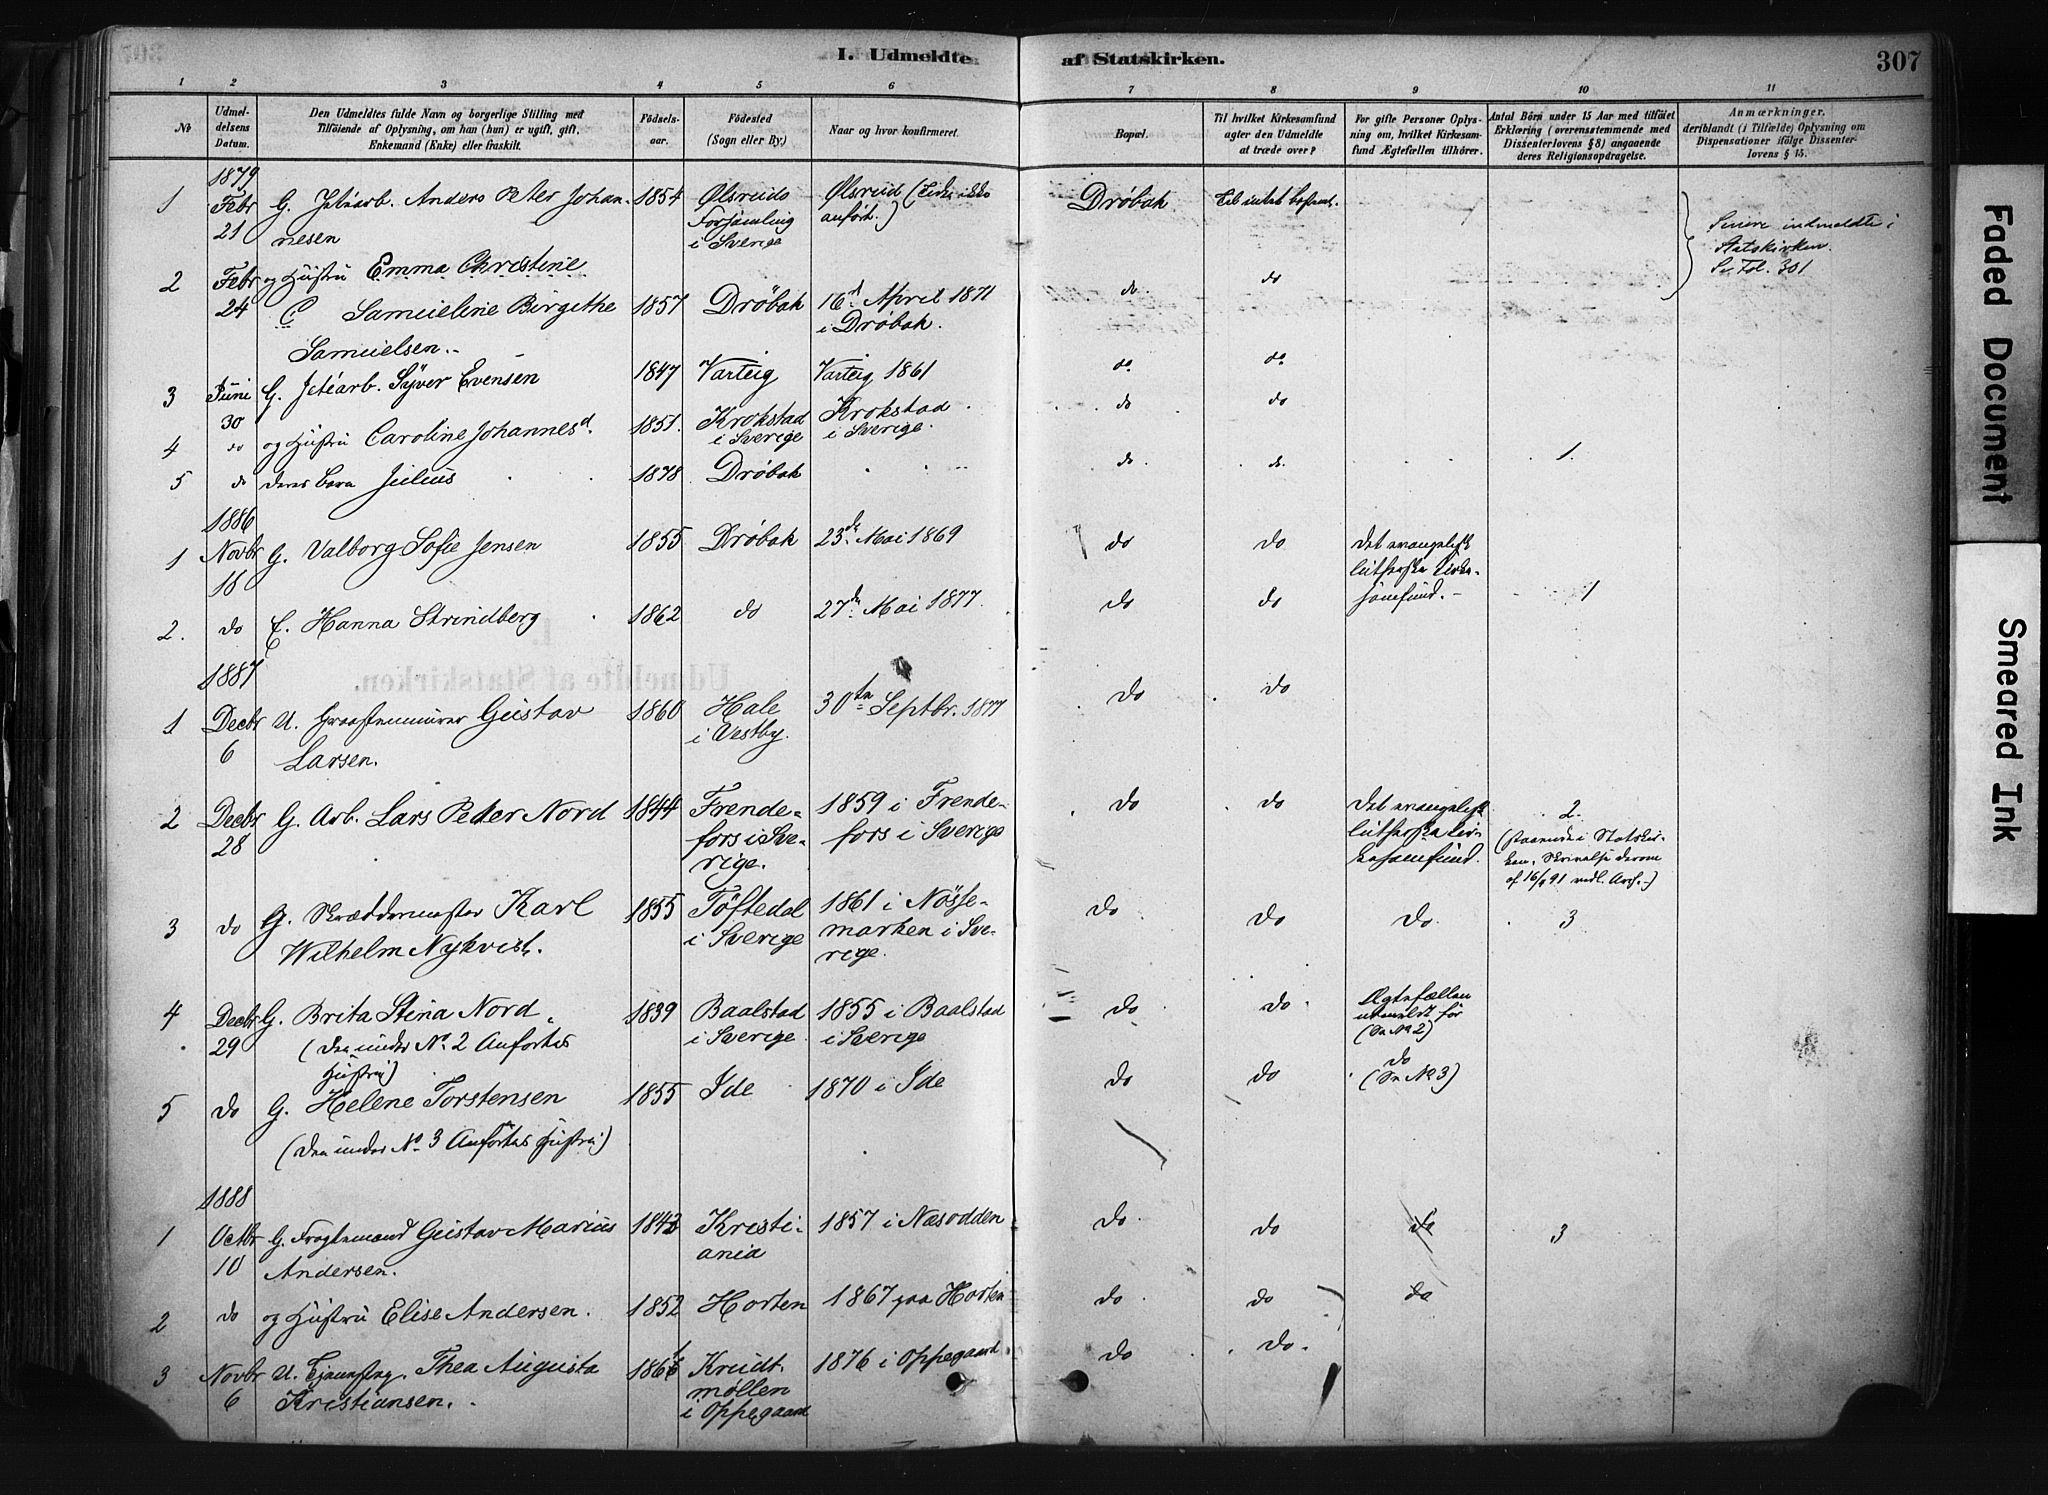 I. Udmeldte af Statskirken.
307
1 2 3 4 5 6 7 8 9 10 11
No
Udmeldelsens Datum.
Den Udmeldtes fulde Navn og borgerlige Stilling med
Tilføiende af Oplysning, om han (hun) er ugift, gift,
Enkemand (Enke) eller fraskilt.
Fødselsaar.
Fødested
(Sogn eller By.)
Naar og hvor konfirmeret.
Bopæl.
Til hvilket Kirkesamfund
agter den Udmeldte
at træde over?
For gifte Personer Oplys-
ning om, hvilket Kirkesam-
fund Ægtefællen tilhører.
Antal Børn under 15 Aar med tilføiet
Erklæring (overensstemmende med
Dissenterlovens § 8) angaaende
deres Religionsopdragelse.
Anmærkninger,
deriblandt (i Tilfælde) Oplysning om
Dispensationer ifølge Dissenter-
lovens § 15.
1879
1 Febr 21 G. Anders Peter Johannesen 1854 Ølsreids Forsamling i Sverige Ølsreid (Tiden ikke anført.) Drøbak Til intet bestemt.
Senere indmeldte i
Statskirken.
Se Fol. 301
2 Febr 24 og Hustru Emma Christine
C Samueline Birgithe
Samuelsen. 1857 Drøbak 16d April 1871 i Drøbak. do do
3 Juni 30 G. Syver Evensen 1847 Varteig Varteig 1861 do do
4 do og Hustru Caroline Johannesd. 1851. Krokstad i Sverige Krokstad i Sverige. do do
5 do deres Barn Julius 1878 Drøbak do do 1.
1886
1 Novbr 18 G. Valborg Sofie Jensen 1855 Drøbak 23de Mai 1869 do do Det evangelisk lutherske Kirkesamfund. 1
2. do E. Hanna Strindberg 1862 do 27de Mai 1877. do do
1887
1 Decbr 6 U. Graastenmurer Gustav
Larsen. 1860 Hale i Vestby. 30te Septbr. 1877 do do
2 Decbr 28 G. Arb. Lars Peter Nord 1844 Frendefors i Sverige. 1859 i Frendefors i Sverige do do Det evangelisk lutherske Kirkesamfund. 2.
(staaende i Statskirken. Skrivelse derom
af 16/ 91 vedl. Arch.)
3 do G. Skræddermester Karl
Wilhelm Nykvist. 1855 Töftedal i Sverige 1861 i Nössemarken i Sverige. do do do. 3
4 Decbr 29 G. Brita Stina Nord
(den under No. 2 Anførtes
Hustru) 1839 Baalstad i Sverige 1855 i Baalstad i Sverige do do Ægtefællen udmeldt før (Se No 2)
5 do G. Helene Torstensen
(den under No. 3 Anførtes Hustru) 1855 Ide 1870 i Ide do do do (Se No 3)
1888
1 Octbr 10 G. Fragtemand Gustav Marius
Andersen. 1843 Kristiania 1857 i Næsodden do do do 3
2 do og Hustru Elise Andersen. 1852 Horten 1867 paa Horten do do do
3 Novbr 6 U. Thea Augusta
Kristiansen. 1861 Krudtmøllen i Oppegaard 1876 i Oppegaard do do.
Faded Document
Smeared Ink